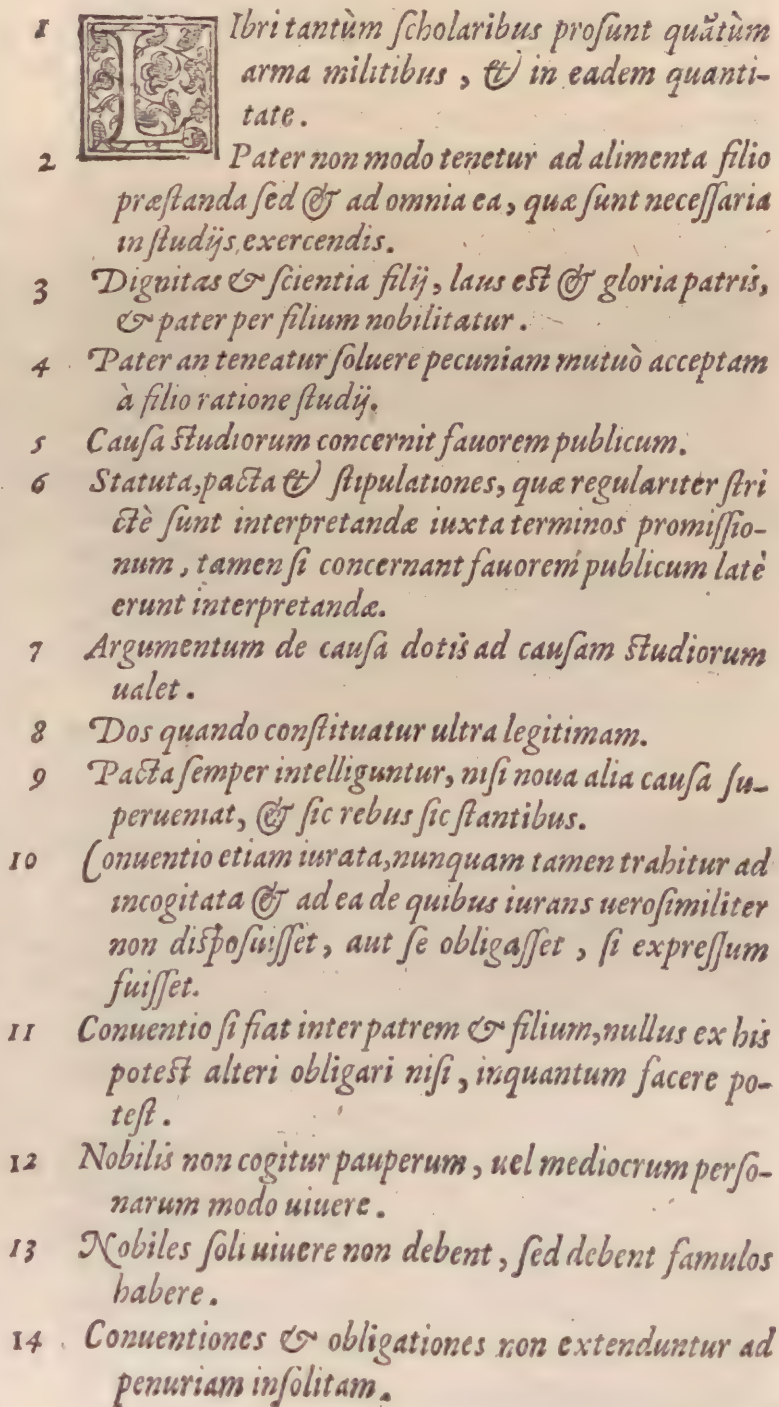 1 LIbri tantùm ſcholaribus proſunt quãtùm
arma militibus, & in eadem quanti-
tate.
2 Pater non modo tenetur ad alimenta filio
præſtanda ſed & ad omnia ea, quæ ſunt neceſſaria
in ſtudijs exercendis.
3 Dignitas & ſcientia filij, laus eſt & gloria patris,
& pater per filium nobilitatur.
4 Pater an teneatur ſoluere pecuniam mutuò acceptam
à filio ratione ſtudij.
5 Cauſa ſtudiorum concernit fauorem publicum.
6 Statuta, pacta & ſtipulationes, quæ regulariter ſtri
ctè ſunt interpretandæ iuxta terminos promiſſio-
num, tamen ſi concernant fauorem publicum latè
erunt interpretandæ.
7 Argumentum de cauſa dotis ad cauſam ſtudiorum
ualet.
8 Dos quando conſtituatur ultra legitimam.
9 Pacta ſemper intelliguntur, niſi noua alia cauſa ſu-
perueniat, & ſic rebus ſic ſtantibus.
10 Conuentio etiam iurata, nunquam tamen trahitur ad
incogitata & ad ea de quibus iurans ueroſimiliter
non diſpoſuiſſet, aut ſe obligaſſet, ſi expreſſum
fuiſſet.
11 Conuentio ſi fiat inter patrem & filium, nullus ex his
poteſt alteri obligari niſi, inquantum facere po-
teſt.
12 Nobilis non cogitur pauperum, uel mediocrum perſo-
narum modo uiuere.
13 Nobiles ſoli uiuere non debent, ſed debent famulos
habere.
14 Conuentiones & obligationes non extenduntur ad
penuriam inſolitam.